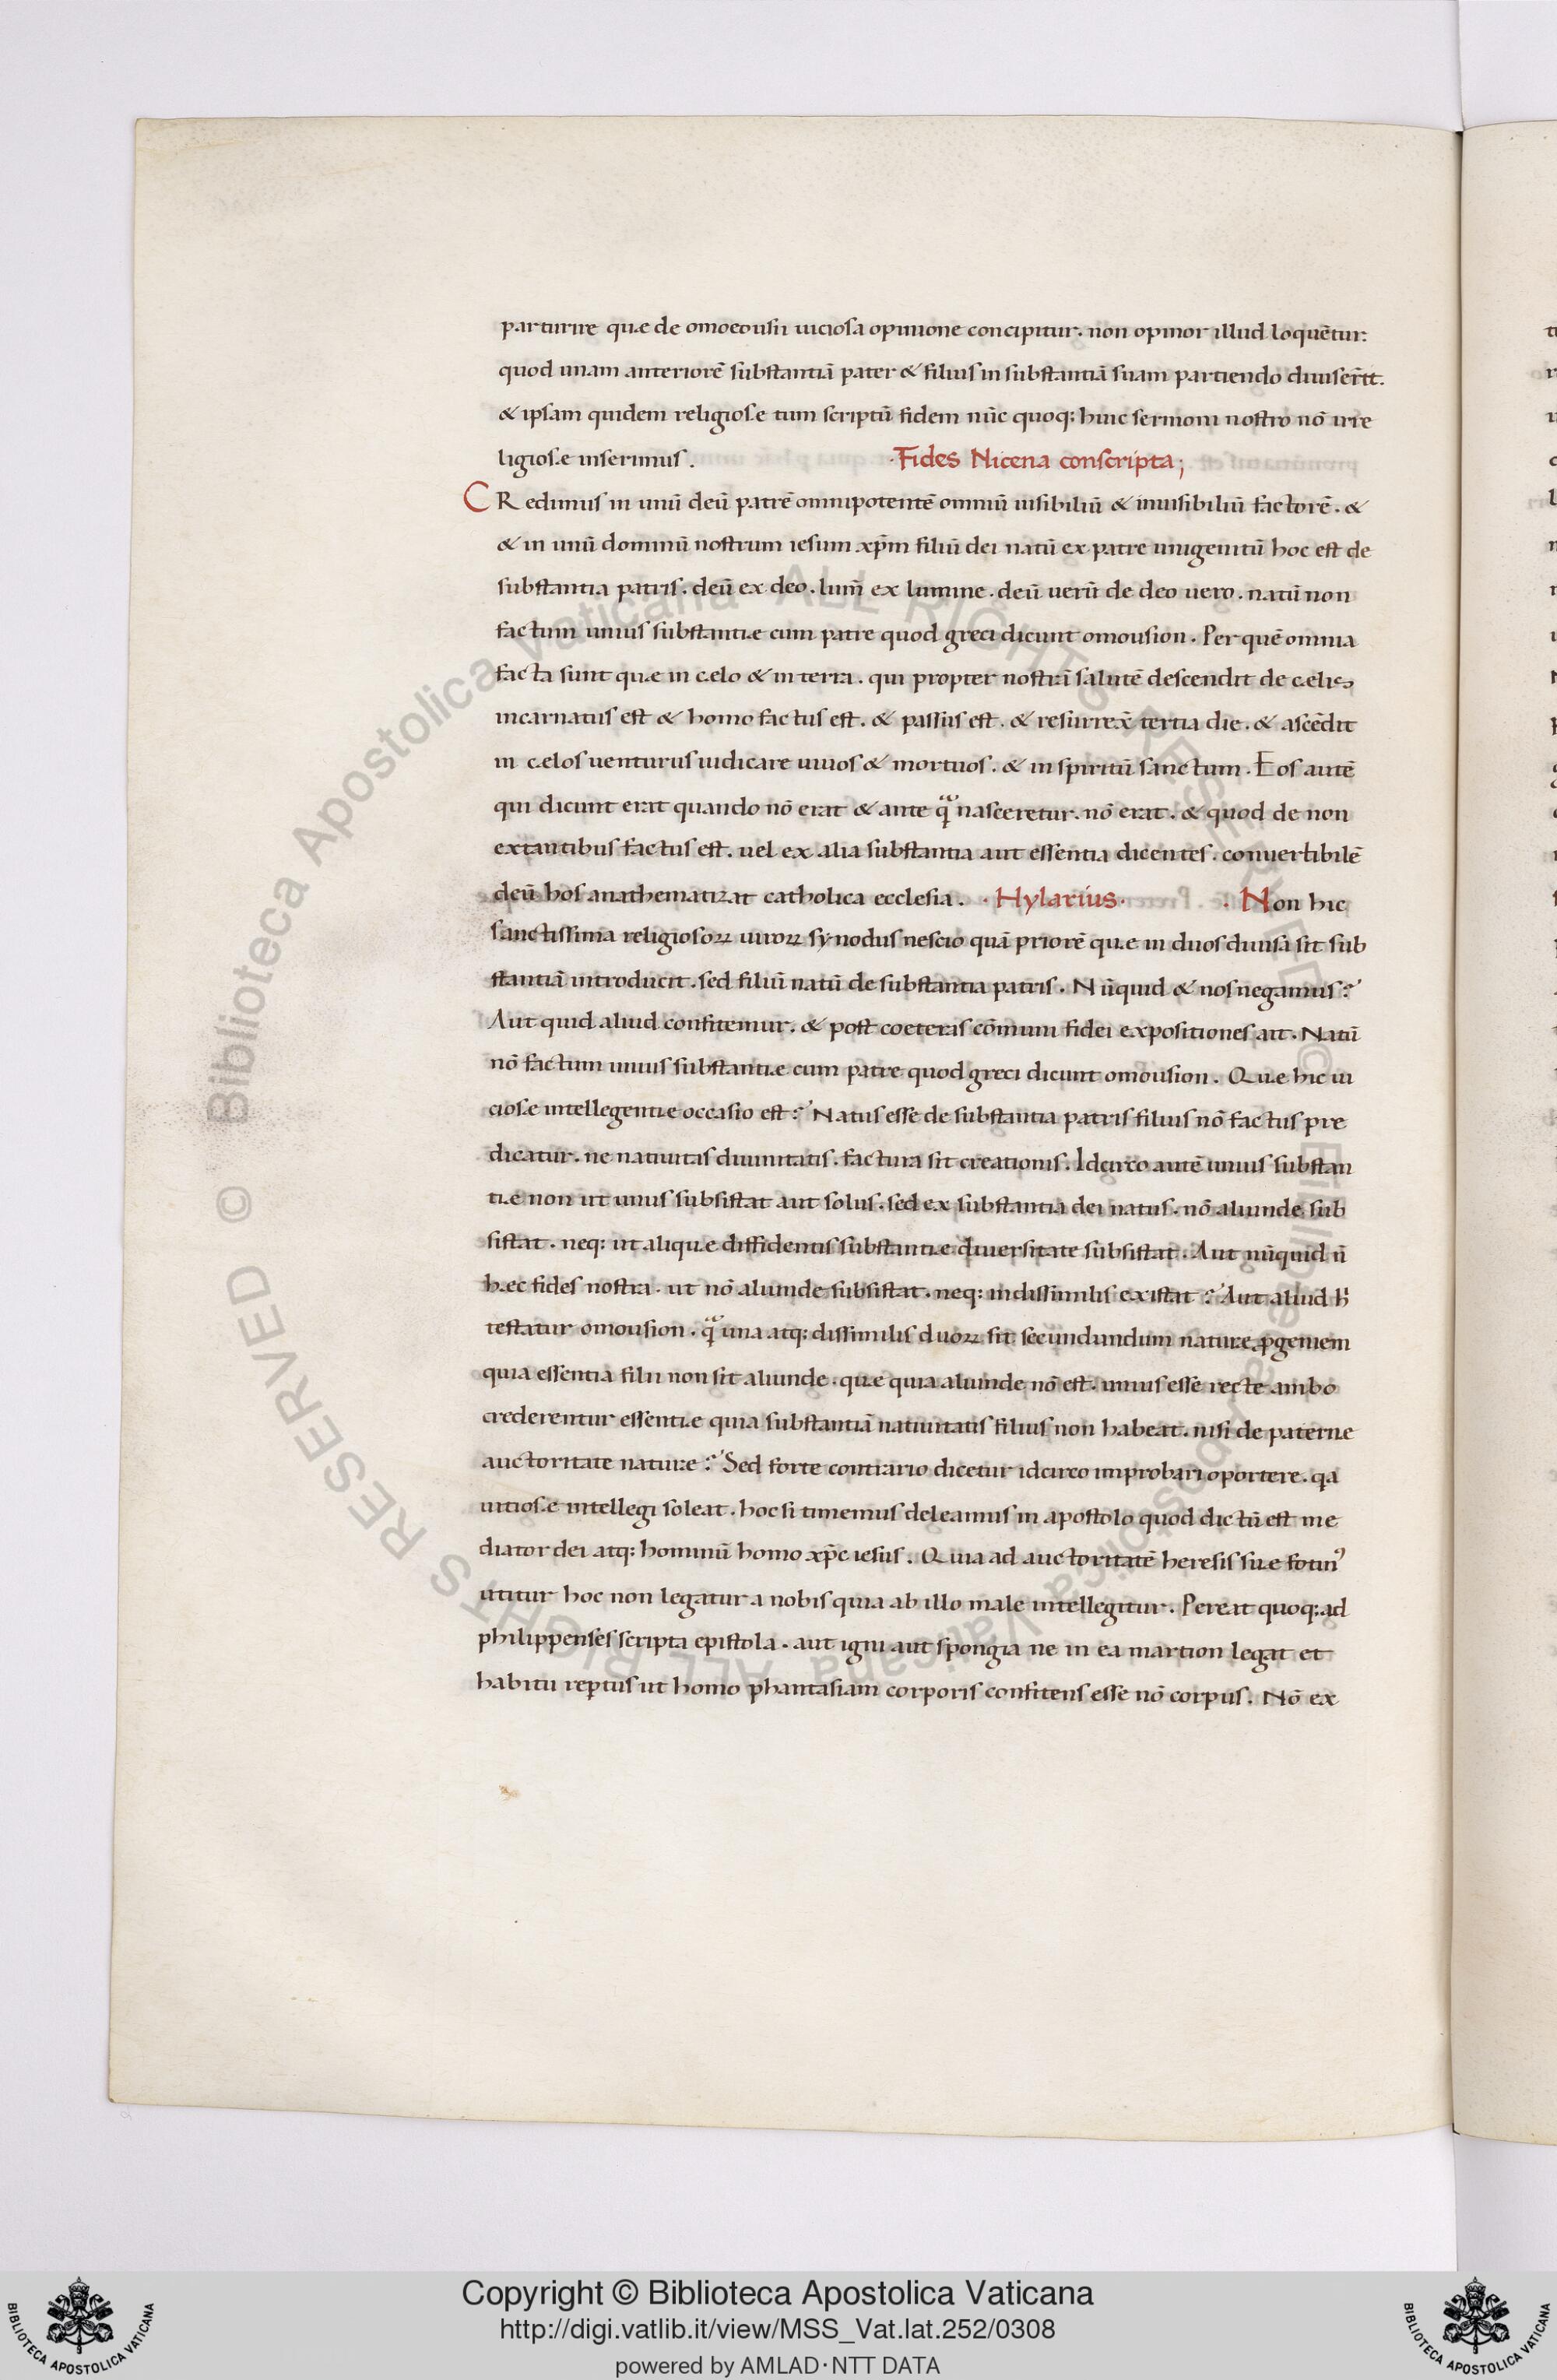 parturire quæ de omoeousii uiciosa opinione concipitur. non opinor illud loquẽtur:
quod unam anteriorẽ substantiã pater & filius in substantiã suam partiendo diuiserĩt.
& ipsam quidem religiosæ tum scriptũ fidem nũc quoq; huic sermoni nostro nõ irre
ligiosæ inserimus.
·Fides Nicena conscripta;
CRedimus in unũ deũ patrẽ omnipotentẽ omniũ uisibiliũ & inuisibiliũ factorẽ. &
& in unũ dominũ nostrum iesum xp̃m filiũ dei natũ ex patre unigenitũ hoc est de
substantia patris. deũ ex deo. lum̃ ex lumine. deũ uerũ de deo uero. natũ non
factum unius substantiæ cum patre quod greci dicunt omousion. Per quẽ omnia
facta sunt quæ in cælo & in terra. qui propter nostrã salutẽ descendit de cælis
incarnatus est & homo factus est. & passus est. & resurrex̃ tertia die. & ascẽdit
in cælos uenturus iudicare uiuos & mortuos. & in spiritũ sanctum. Eos autẽ
qui dicunt erat quando nõ erat & ante qᷓ nasceretur. nõ erat. & quod de non
extantibus factus est. uel ex alia substantia aut essentia dicentes. convertibilẽ
deũ hos anathematizat catholica ecclesia. ·Hylarius· . Non hic
sanctissima religiosoꝝ uiroꝝ synodus nescio quã priorẽ quæ in duos diuisa sit sub
stantiã introducit. sed filiũ natũ de substantia patris. Nũquid & nos negamus?
Aut quid aliud confitemur. & post coeteras cõmuni fidei expositiones ait. Natũ
nõ factum unius substantiæ cum patre quod greci dicunt omousion. Quæ hic ui
ciosæ intellegentiæ occasio est? Natus esse de substantia patris filius nõ factus pre
dicatur. ne natiuitas diuinitatis. factura sit creationis. Idcirco autẽ unius substan
tiæ non ut unus subsistat aut solus. sed ex substantia dei natus. nõ aliunde sub
sistat. neq; ut aliquæ diffidentis substantiæ diuersitate subsistat. Aut nũquid ñ
hæc fides nostra. ut nõ aliunde subsistat. neq; indissimilis existat? Aut aliud h̾
testatur omousion. qᷓ una atq; dissimilis duoꝝ sit secundundum naturæ ꝓgeniem
quia essentia filii non sit aliunde. quæ quia aliunde nõ est. unius esse recte ambo
crederentur essentiæ quia substantiã natiuitatis filius non habeat. nisi de paternæ
auctoritate naturæ? Sed forte contrario dicetur idcirco improbari oportere. qa
uitiosæ intellegi soleat. hoc si timemus deleamus in apostolo quod dictũ est me
diator dei atq; hominũ homo xp̃c iesus. Quia ad auctoritatẽ heresis suæ fotinꝰ
utitur hoc non legatur a nobis quia ab illo male intellegitur. Pereat quoq; ad
philippenses scripta epistola. aut igni aut spongia ne in ea martion legat et
habitu reptus ut homo phantasiam corporis confitens esse nõ corpus. Nõ ex
© Biblioteca Apostolica Vaticana ALL RIGHTS RESERVED
© Biblioteca Apostolica Vaticana ALL RIGHTS RESERVED
Copyright © Biblioteca Apostolica Vaticana
http://digi.vatlib.it/view/MSS_Vat.lat.252/0308
powered by AMLAD·NTT DATA
BIBLIOTECA APOSTOLICA VATICANA
BIBLIOTECA APOSTOLICA VATICANA